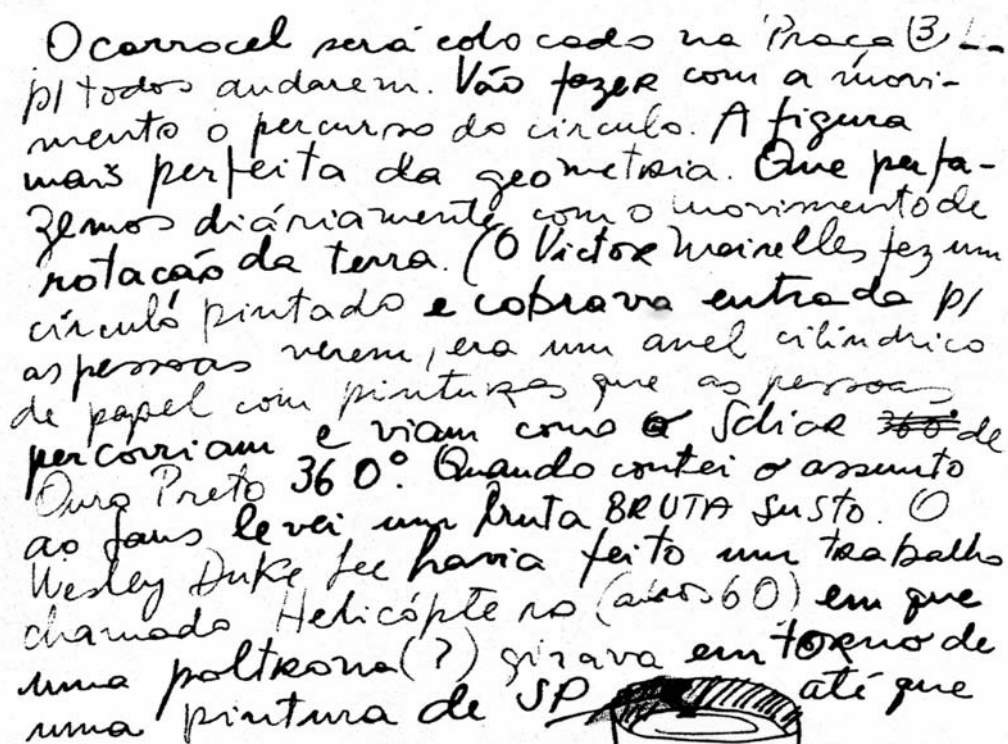 O carrocel será colocado na Praça (3) L..
p/ todos andarem. Vão fazer com a movi-
mento o percurso do círculo. A figura
mais perfeita da geometria. Que perfa-
zemos diáriamente com o movimento de
rotacão da terra. (O Victor Meirelles fez um
círculo pintado e cobrava entrada p/
as pessoas verem, era um anel cilíndrico
de papel com pinturas que as pessoas
percorriam e viam como o Scliar 360° de
Ouro Preto 360°. Quando contei o assunto
ao Jans levei um bruta BRUTA SUSTO. O
Wesley Duke Lee havia feito um trabalho
chamado Helicóptero (anos 60) em que
uma poltrona (?) girava em torno de
uma pintura de SP até que